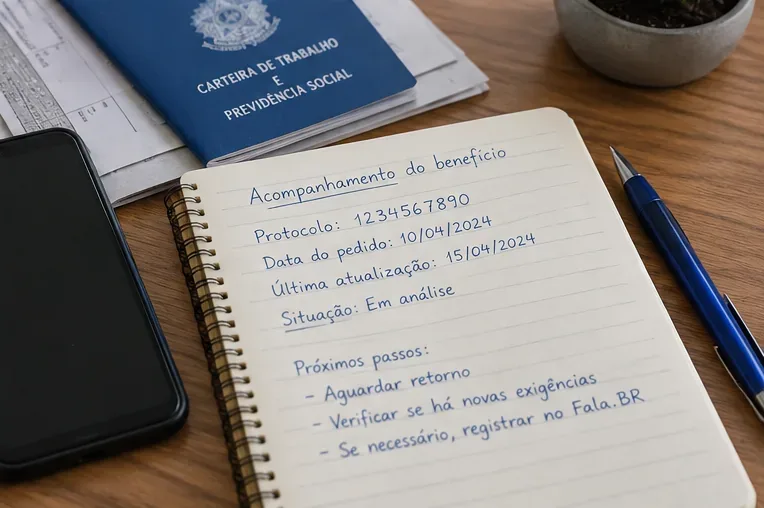 CARTEIRA DE TRABALHO
E
PREVIDÊNCIA SOCIAL
Acompanhamento do benefício
Protocolo: 1234567890
Data do pedido: 10/04/2024
Última atualização: 15/04/2024
Situação: Em análise
Próximos passos:
- Aguardar retorno
- Verificar se há novas exigências
- Se necessário, registrar no Fala.BR